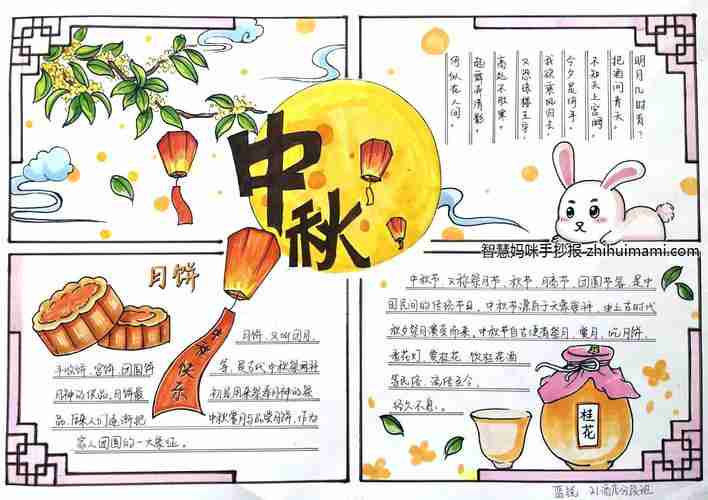 中秋
明月几时有？
把酒问青天。
不知天上宫阙，
今夕是何年。
我欲乘风归去，
又恐琼楼玉宇，
高处不胜寒。
起舞弄清影，
何似在人间。
智慧妈咪手抄报-zhihuimami.com
月饼
月饼、又叫团月、
丰收饼、宫饼、团圆饼
等，是古代中秋祭拜
月神的供品，月饼最
初是用来祭奉月神的祭
品，后来人们逐渐把
中秋赏月与品尝月饼，作为
家人团圆的一大象征。
中秋快乐
中秋节，又称祭月节、秋节、月夕节、团圆节等，是中
国民间的传统节日。中秋节源自于天象崇拜，由上古时代
秋夕祭月演变而来。中秋节自古便有祭月、赏月、吃月饼、
看花灯、赏桂花、饮桂花酒
等民俗，流传至今，
经久不息。
桂花